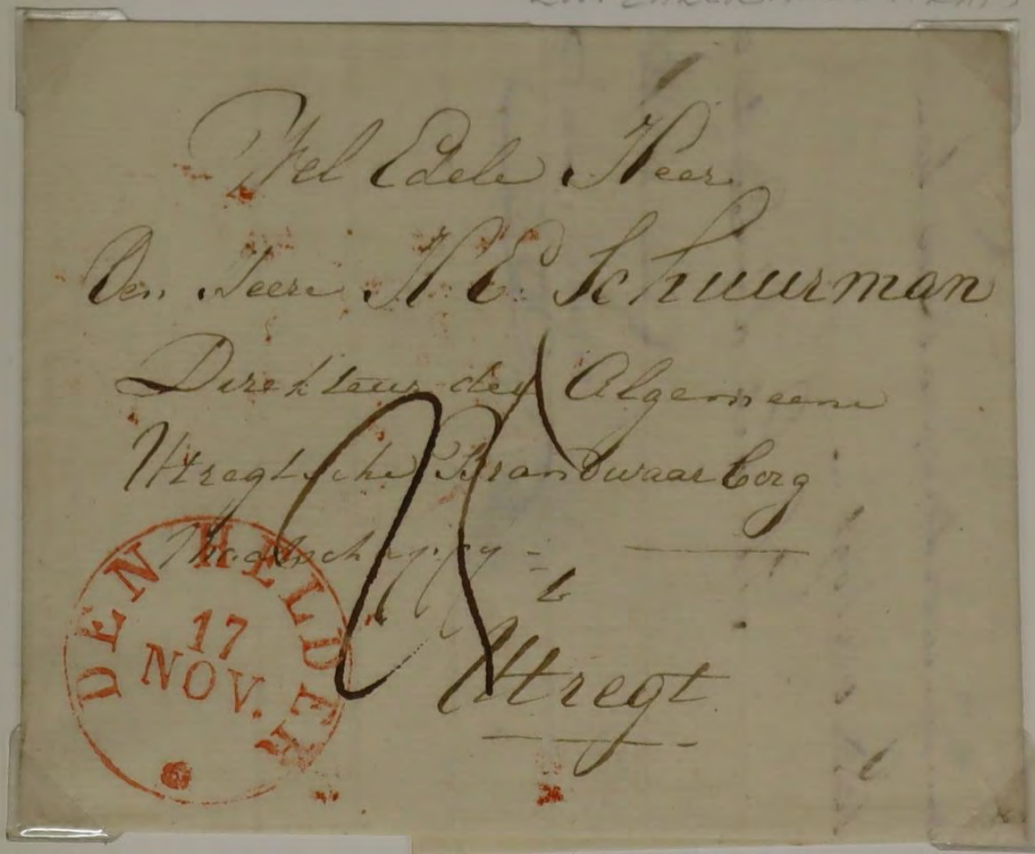 Wel Edele Heer
Den Heere N E Schuurman
Direkteur der Algemeene
Utregtsche Brandwaarborg
Maatschappy =
te
Utregt
DEN HELDER
17
NOV.